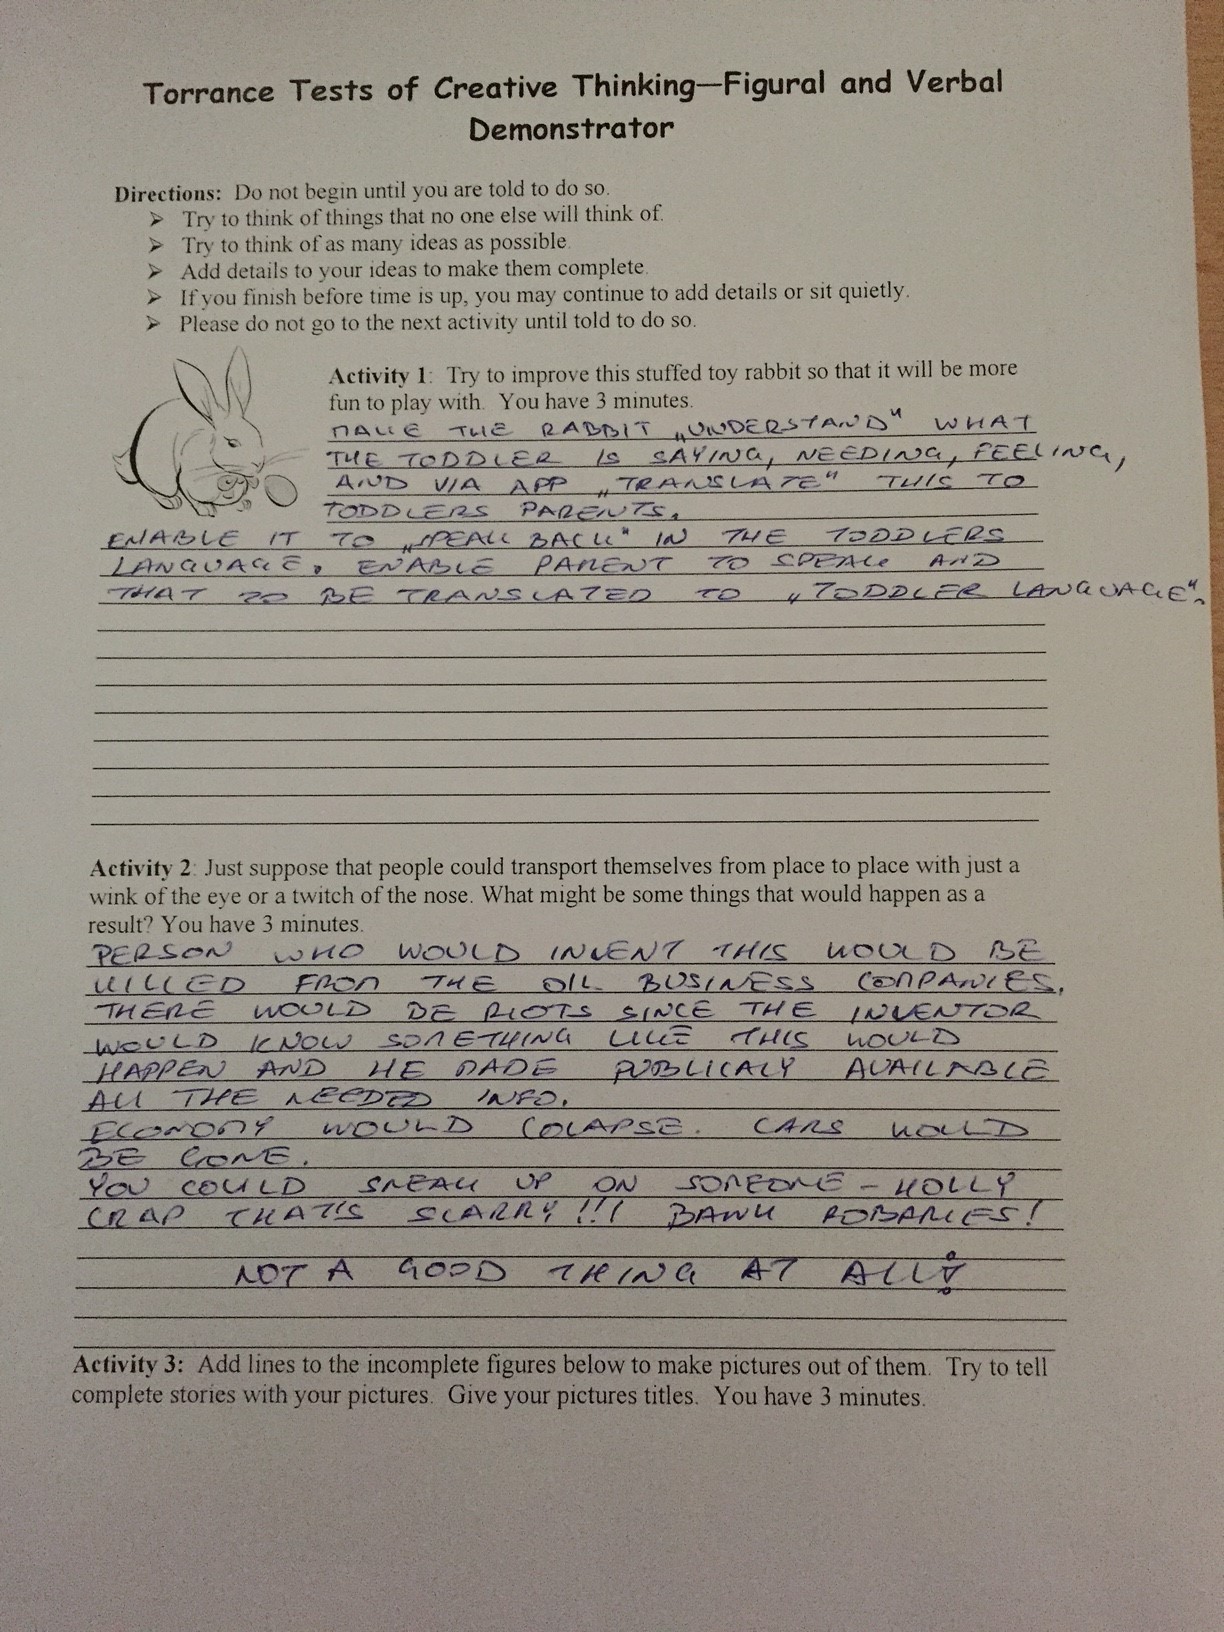 Torrance Tests of Creative Thinking—Figural and Verbal
Demonstrator
Directions: Do not begin until you are told to do so.
➢ Try to think of things that no one else will think of.
➢ Try to think of as many ideas as possible.
➢ Add details to your ideas to make them complete.
➢ If you finish before time is up, you may continue to add details or sit quietly.
➢ Please do not go to the next activity until told to do so.
Activity 1: Try to improve this stuffed toy rabbit so that it will be more
fun to play with. You have 3 minutes.
MAKE THE RABBIT „UNDERSTAND" WHAT
THE TODDLER IS SAYING, NEEDING, FEELING,
AND VIA APP „TRANSLATE" THIS TO
TODDLERS PARENTS.
ENABLE IT TO „SPEAK BACK" IN THE TODDLERS
LANGUAGE. ENABLE PARENT TO SPEAK AND
THAT TO BE TRANSLATED TO „TODDLER LANGUAGE".
Activity 2: Just suppose that people could transport themselves from place to place with just a
wink of the eye or a twitch of the nose. What might be some things that would happen as a
result? You have 3 minutes.
PERSON WHO WOULD INVENT THIS WOULD BE
KILLED FROM THE OIL BUSINESS COMPANIES.
THERE WOULD BE RIOTS SINCE THE INVENTOR
WOULD KNOW SOMETHING LIKE THIS WOULD
HAPPEN AND HE MADE PUBLICALY AVAILABLE
ALL THE NEEDED INFO.
ECONOMY WOULD COLAPSE. CARS WOULD
BE GONE.
YOU COULD SNEAK UP ON SOMEONE – HOLLY
CRAP THAT'S SCARRY!!! BANK ROBARIES!
NOT A GOOD THING AT ALL!
Activity 3: Add lines to the incomplete figures below to make pictures out of them. Try to tell
complete stories with your pictures. Give your pictures titles. You have 3 minutes.